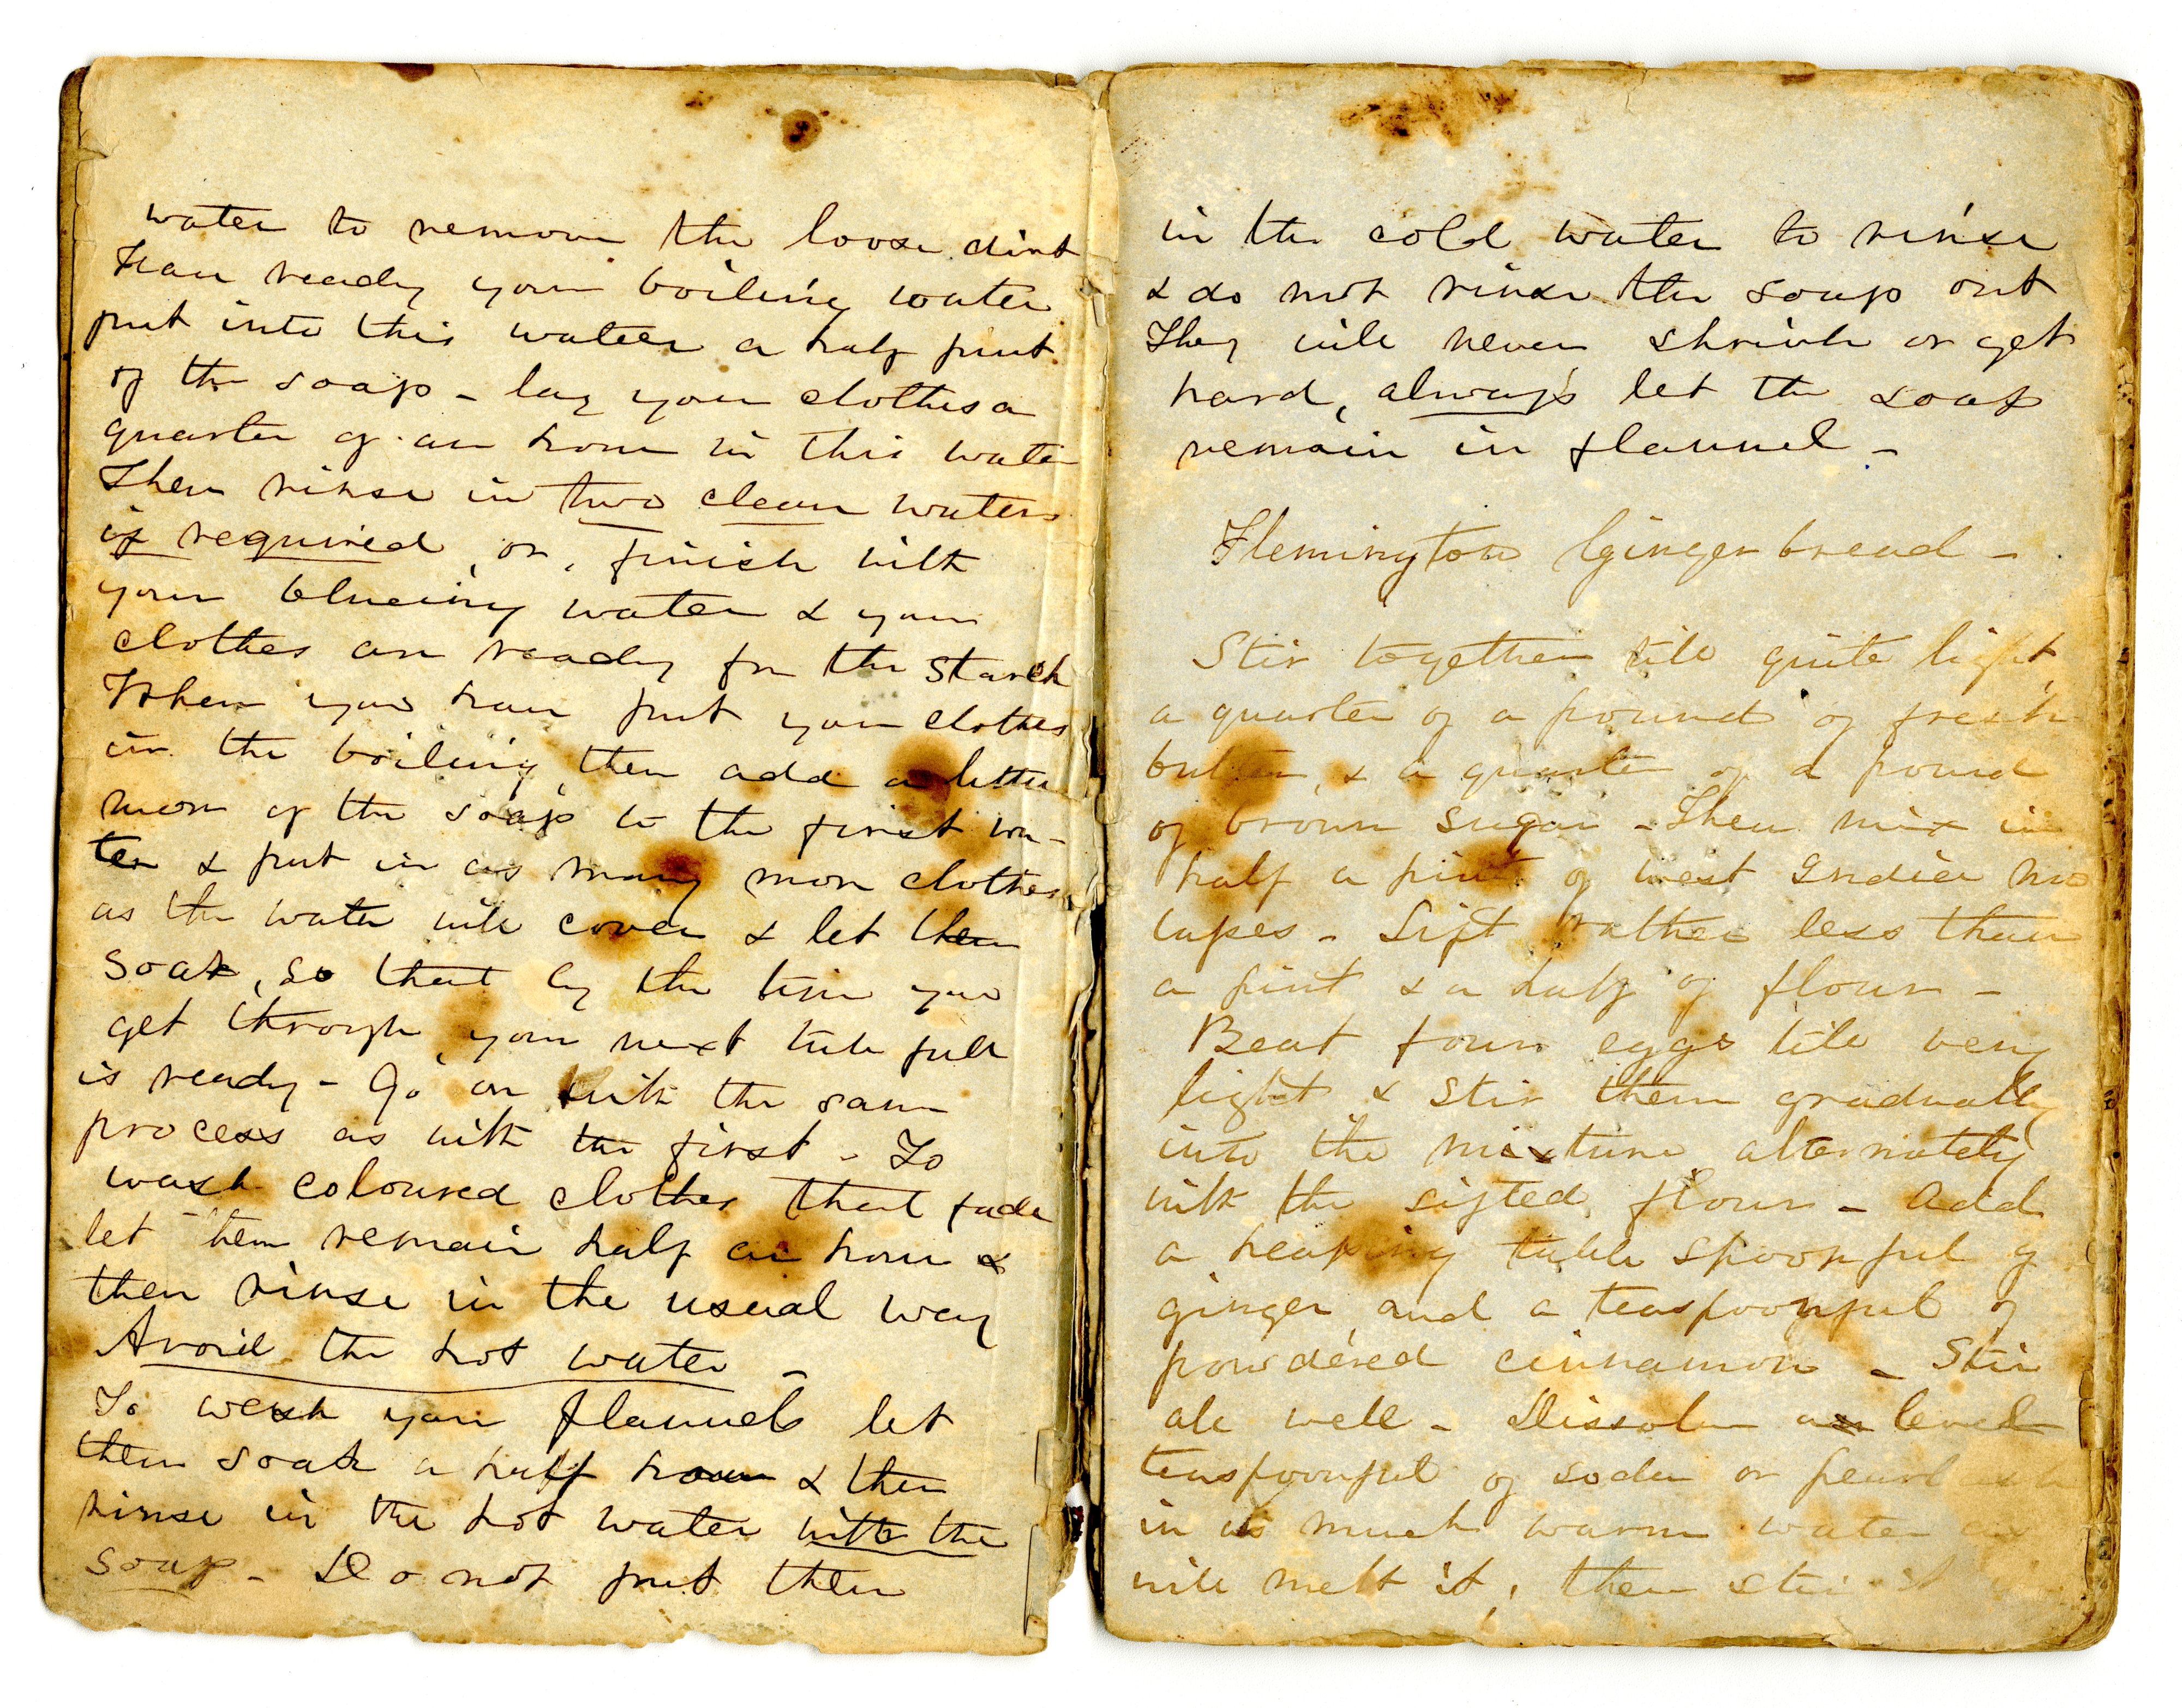 water to remove the loose dirt
Have ready your boiling water
put into this water a half pint
of the soap - lay your clothes a
quarter of an hour in this water
Then rinse in two clean waters
if required, or, finish with
your blueing water & your
clothes are ready for the starch
When you have put your clothes
in the boiling, then add a little
more of the soap to the first wa-
ter & put in as many more clothes
as the water will cover & let them
soak, so that by the time you
get through, your next tub full
is ready - Go on with the same
process as with the first - To
wash coloured clothes that fade
let them remain half an hour &
then rinse in the usual way
Avoid the hot water -
To wash your flannels let
them soak a half hour & then
rinse in the hot water with the
soap - Do not put them
in the cold water to rinse
& do not rinse the soap out
They will never shrink or get
hard, always let the soap
remain in flannel -
Flemington Ginger bread -
Stir together till quite light
a quarter of a pound of fresh
butter, & a quarter of a pound
of brown sugar - Then mix in
half a pint of West India mo
lasses - Sift rather less than
a pint & a half of flour -
Beat four eggs till very
light & stir them gradually
into the mixture alternately
with the sifted flour - Add
a heaping table spoonful of
ginger and a teaspoonful of
powdered cinnamon - Stir
all well - Dissolve a level
teaspoonful of soda or pearl ash
in as much warm water as
will melt it, then stir it